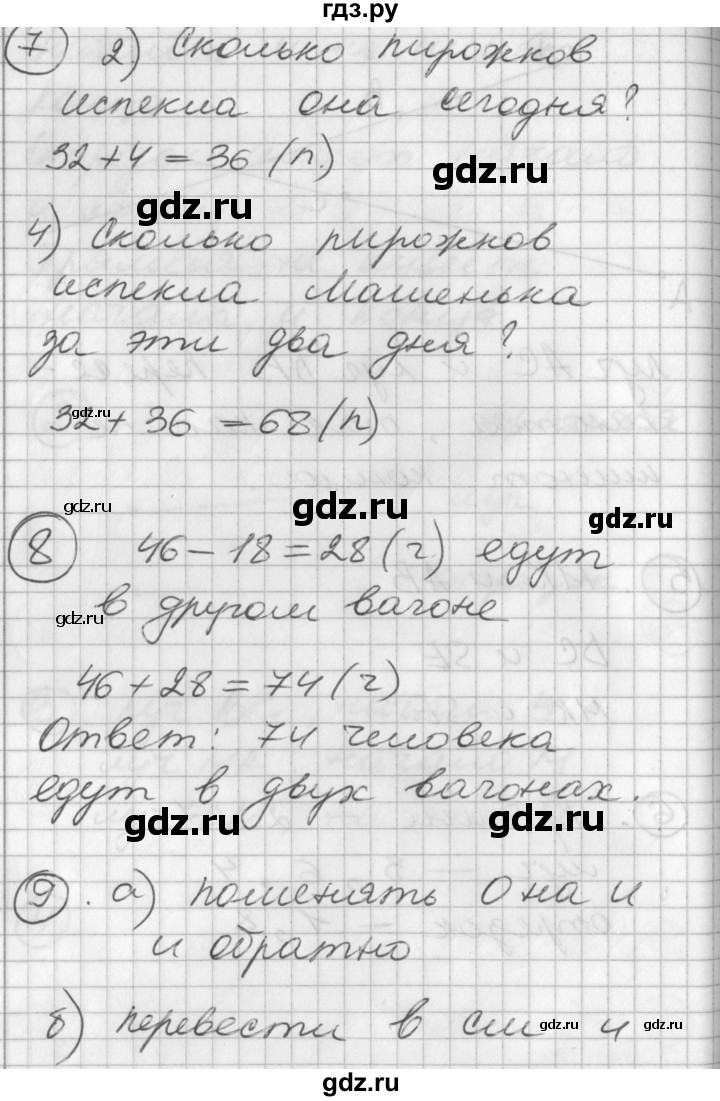 гдз.ру
7 2) Сколько пирожков
испекла она сегодня?
32+4=36 (п.)
gdz.ru
gdz.ru
4) Сколько пирожков
испекла Машенька
за эти два дня?
gdz.ru
32+36=68(п)
gdz.ru
gdz.ru
gdz.ru
8 46-18=28(ч) едут
gdz.ru
в другом вагоне
46+28=74(ч)
Ответ: 74 человека
едут в двух вагонах.
gdz.ru
gdz.ru
9. а) поменять О на и
и обратно
б) перевести в см и
gdz.ru
gdz.ru
gdz.ru